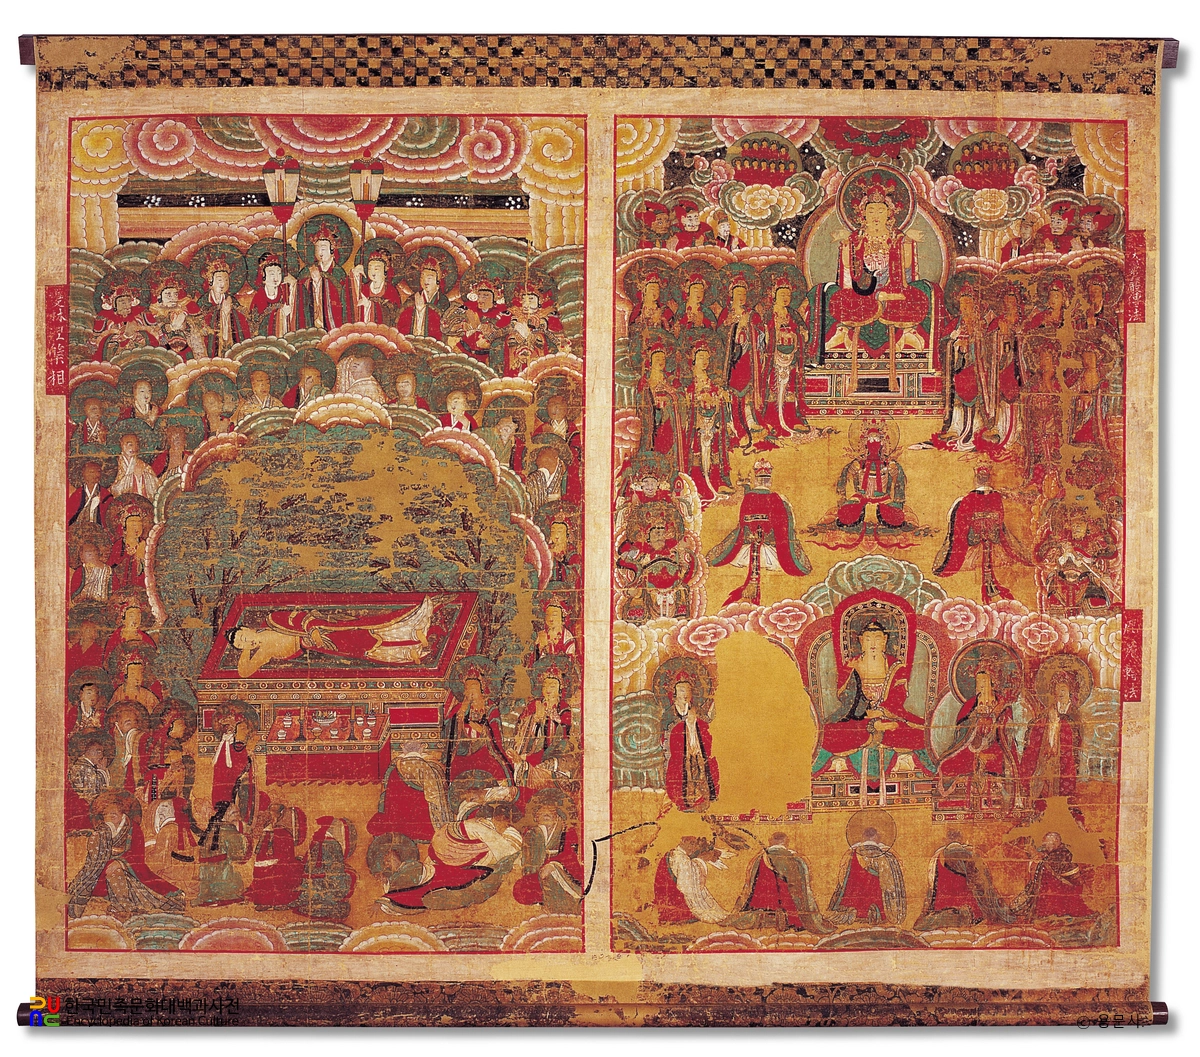 雙林涅槃相
鹿苑轉法
한국민족문화대백과사전
Encyclopedia of Korean Culture
ⓒ용문사